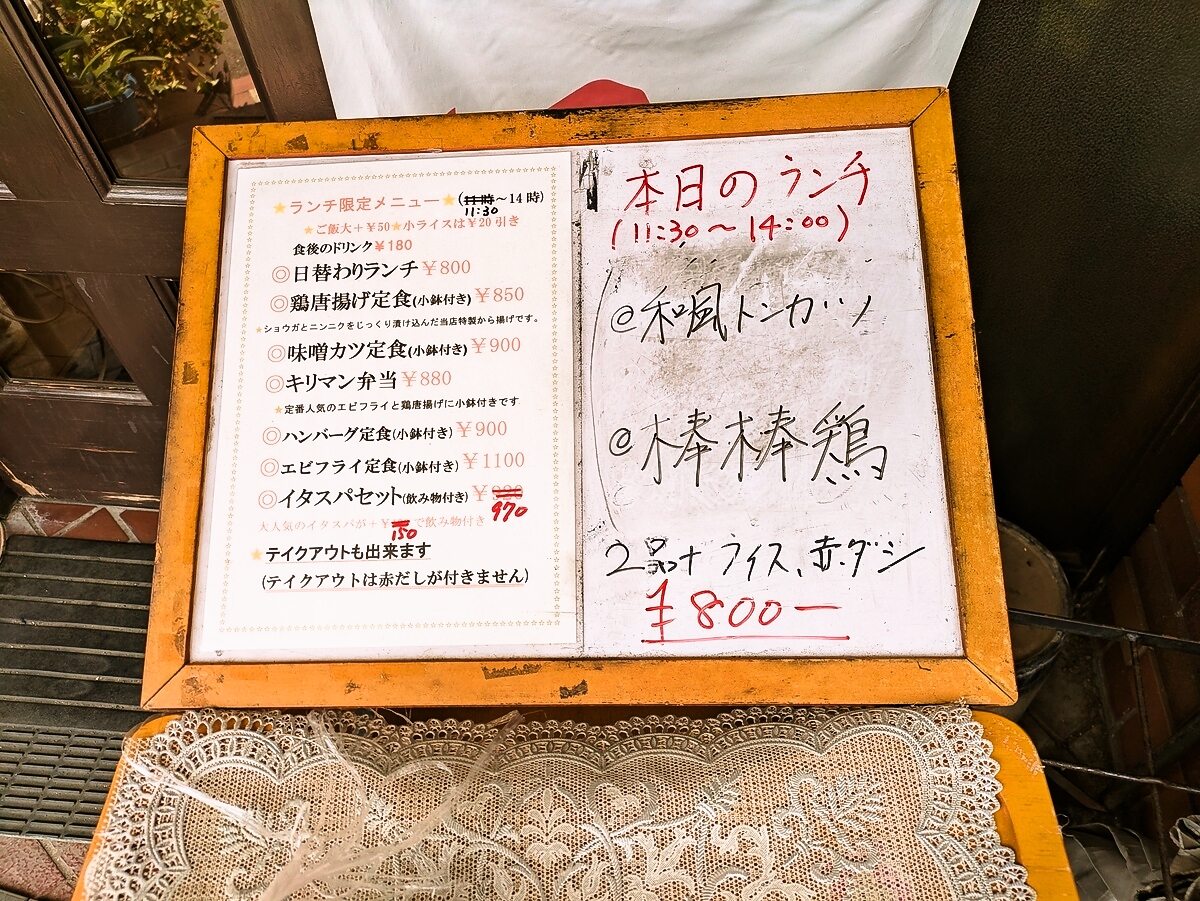 ★ランチ限定メニュー★(11時～14時)
11:30
★ご飯大+¥50★小ライスは¥20引き
食後のドリンク¥180
◎日替わりランチ¥800
◎鶏唐揚げ定食(小鉢付き)¥850
★ショウガとニンニクをじっくり漬け込んだ当店特製から揚げです。
◎味噌カツ定食(小鉢付き)¥900
◎キリマン弁当¥880
★定番人気のエビフライと鶏唐揚げに小鉢付きです
◎ハンバーグ定食(小鉢付き)¥900
◎エビフライ定食(小鉢付き)¥1100
◎イタスパセット(飲み物付き)¥
970
大人気のイタスパが+¥ で飲み物付き
150
★テイクアウトも出来ます
(テイクアウトは赤だしが付きません)
本日のランチ
(11:30～14:00)
@和風トンカツ
@棒棒鶏
2品+ライス、赤ダシ
¥800－